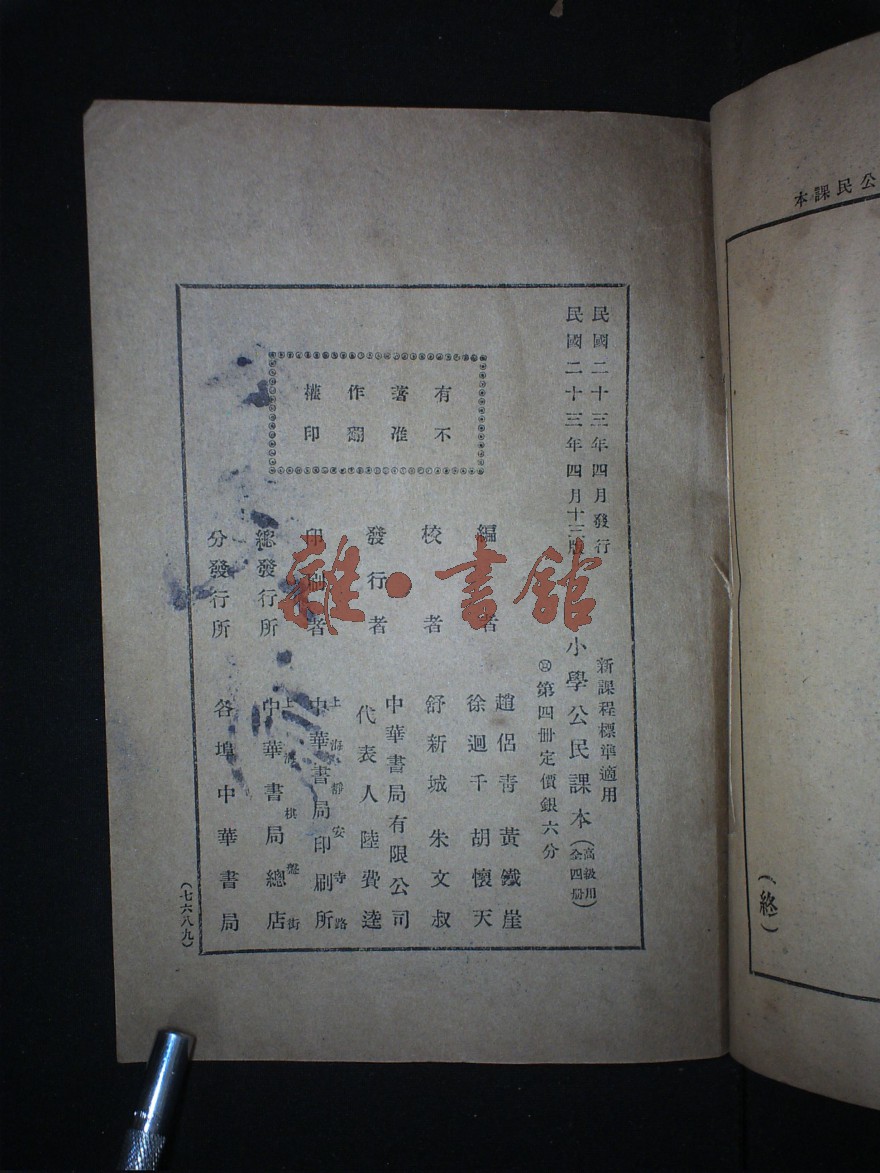 公民課本
（終）
民國二十三年四月發行
民國二十三年四月十三版
新課程標準適用
小學公民課本（高級用全四册）
第四册定價銀六分
有著作權
不准翻印
編者
趙侣青 黃鐵崖
徐迥千 胡懷天
校者
舒新城 朱文叔
發行者
中華書局有限公司
代表人陸費逵
印刷者
上海靜安寺路
中華書局印刷所
總發行所
上海棋盤街
中華書局總店
分發行所
各埠中華書局
（七六八九）
雜·書館